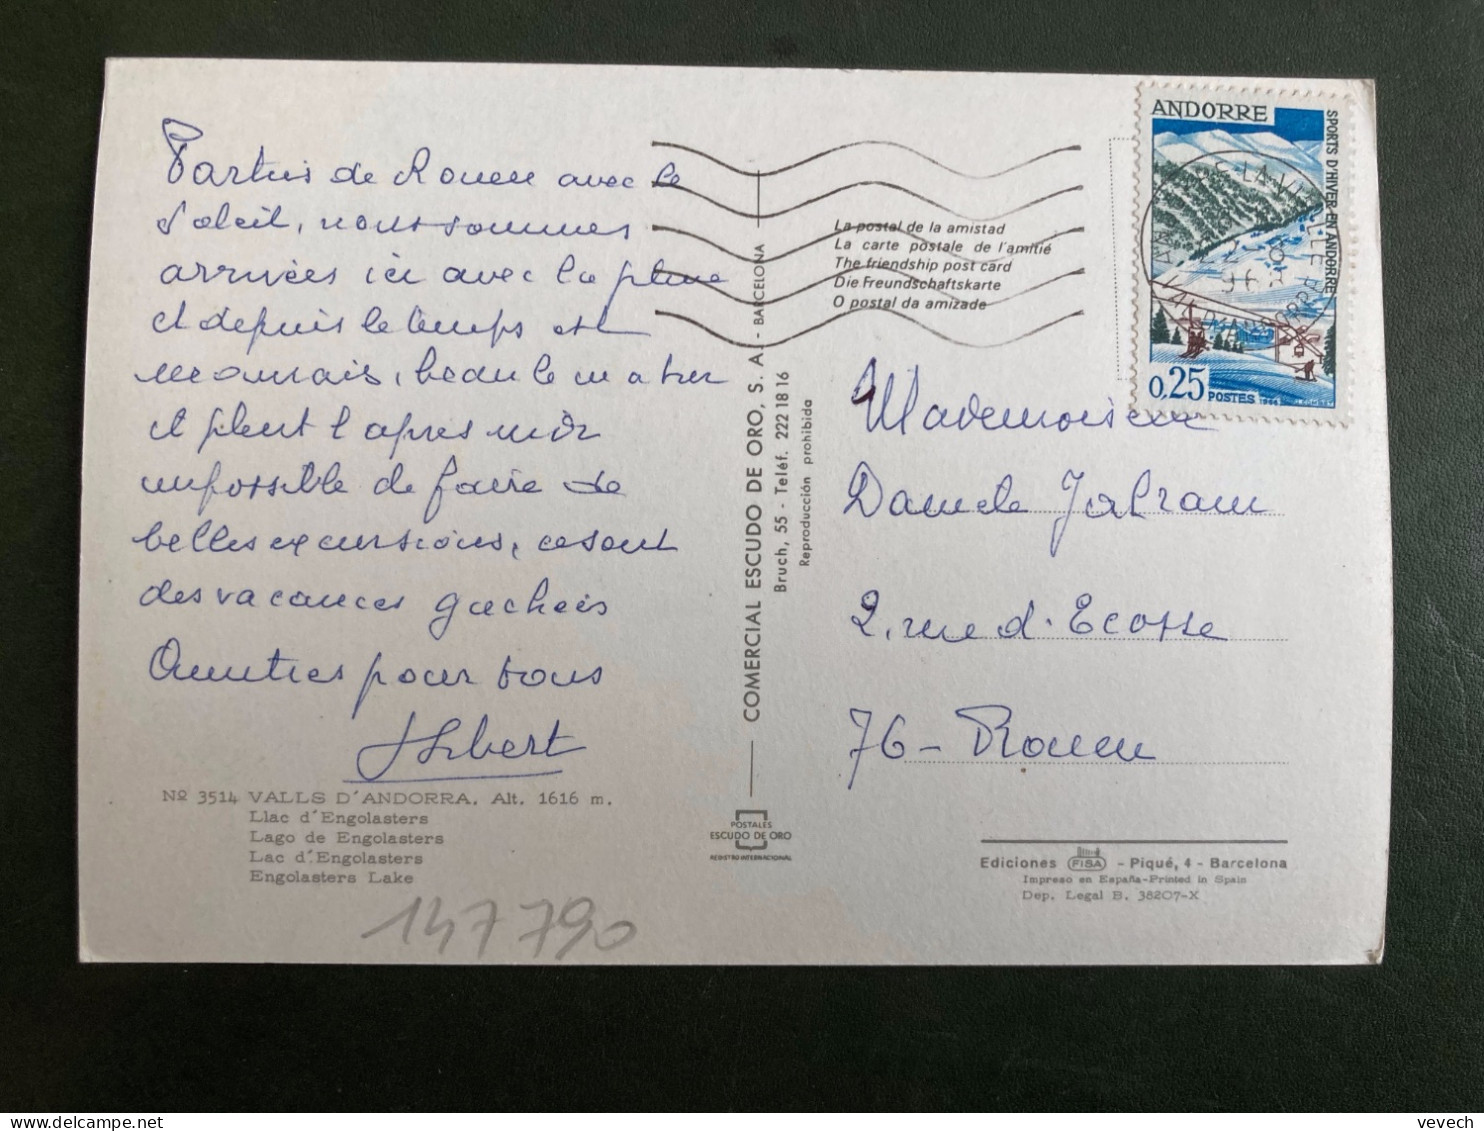 Partis de Rouen avec le
soleil, nous sommes
arrivées ici avec la pluie
et depuis le temps est
mauvais, beau le matin
et pleut l'apres midi
impossible de faire de
belles excursions, ce sont
des vacances gachées
Amitiés pour tous
Hebert
Nº 3514 VALLS D'ANDORRA. Alt. 1616 m.
Llac d'Engolasters
Lago de Engolasters
Lac d'Engolasters
Engolasters Lake
147790
COMERCIAL ESCUDO DE ORO, S. A. - BARCELONA
Bruch, 55 - Teléf. 222 18 16
Reproducción prohibida
POSTALES
ESCUDO DE ORO
REGISTRO INTERNACIONAL
La postal de la amistad
La carte postale de l'amitié
The friendship post card
Die Freundschaftskarte
O postal da amizade
ANDORRE
SPORTS D'HIVER EN ANDORRE
0,25 POSTES 1966
Mademoiselle
Daniele
2, rue d'Ecosse
76 - Rouen
Ediciones FISA - Piqué, 4 - Barcelona
Impreso en España-Printed in Spain
Dep. Legal B. 38207-X
vevech